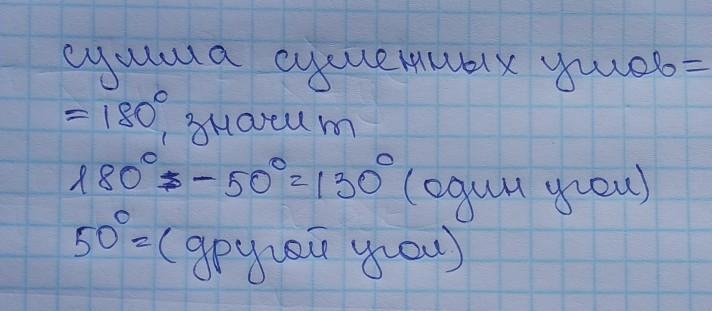 сумма сумежных углов=
=180°, значит
180° - 50°=130° (один угол)
50°=(другой угол)